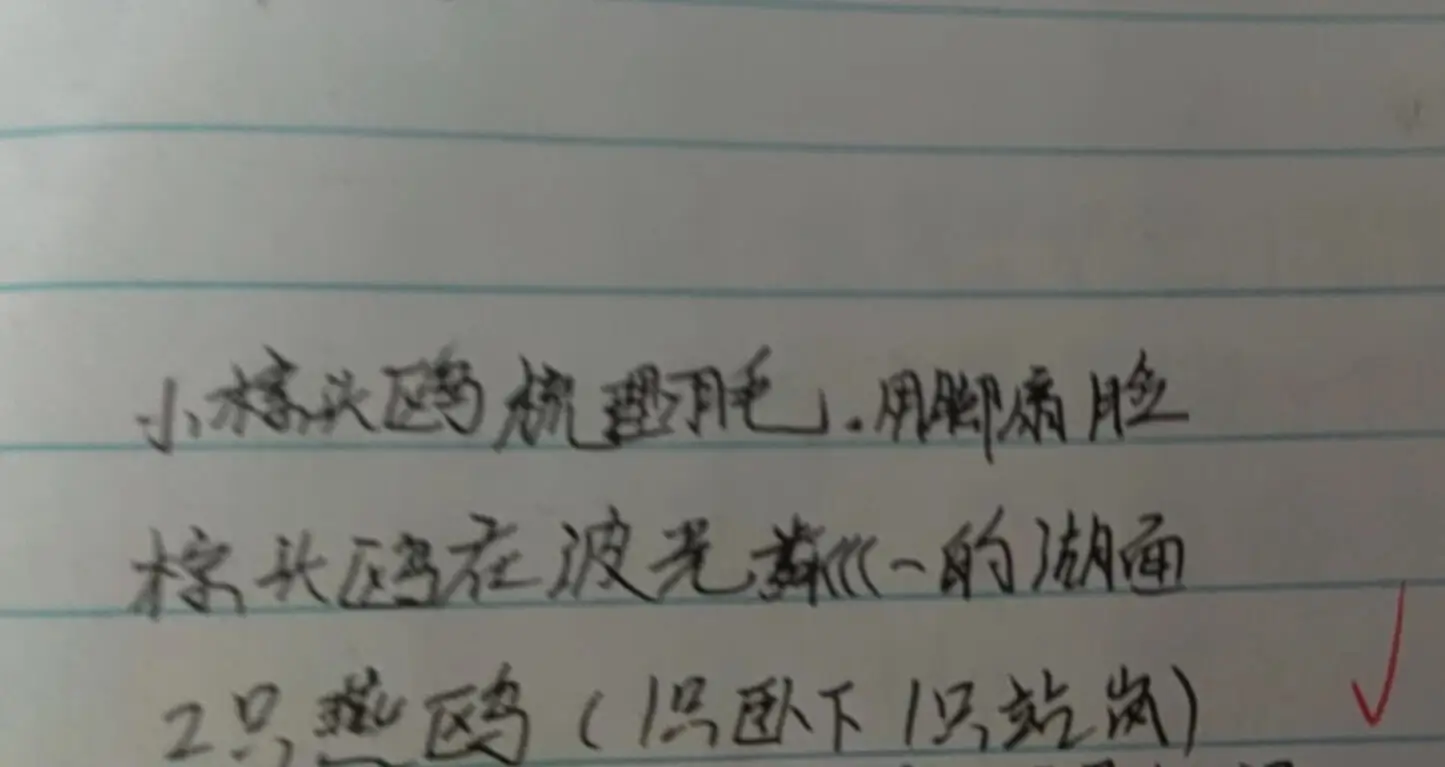 小棕头鸥梳理羽毛.用脚挠脸
棕头鸥在波光粼粼的湖面
2只燕鸥(1只卧下1只站岗)